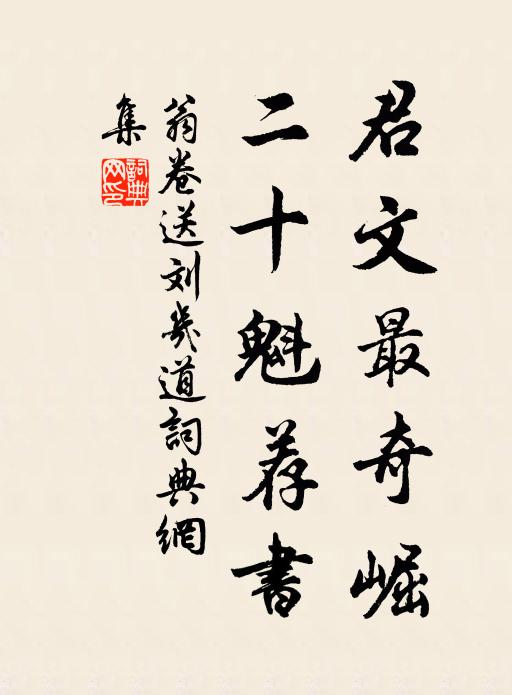 君文最奇崛
二十魁荐書
翁卷送刘幾道詞典網
集
詞典網印